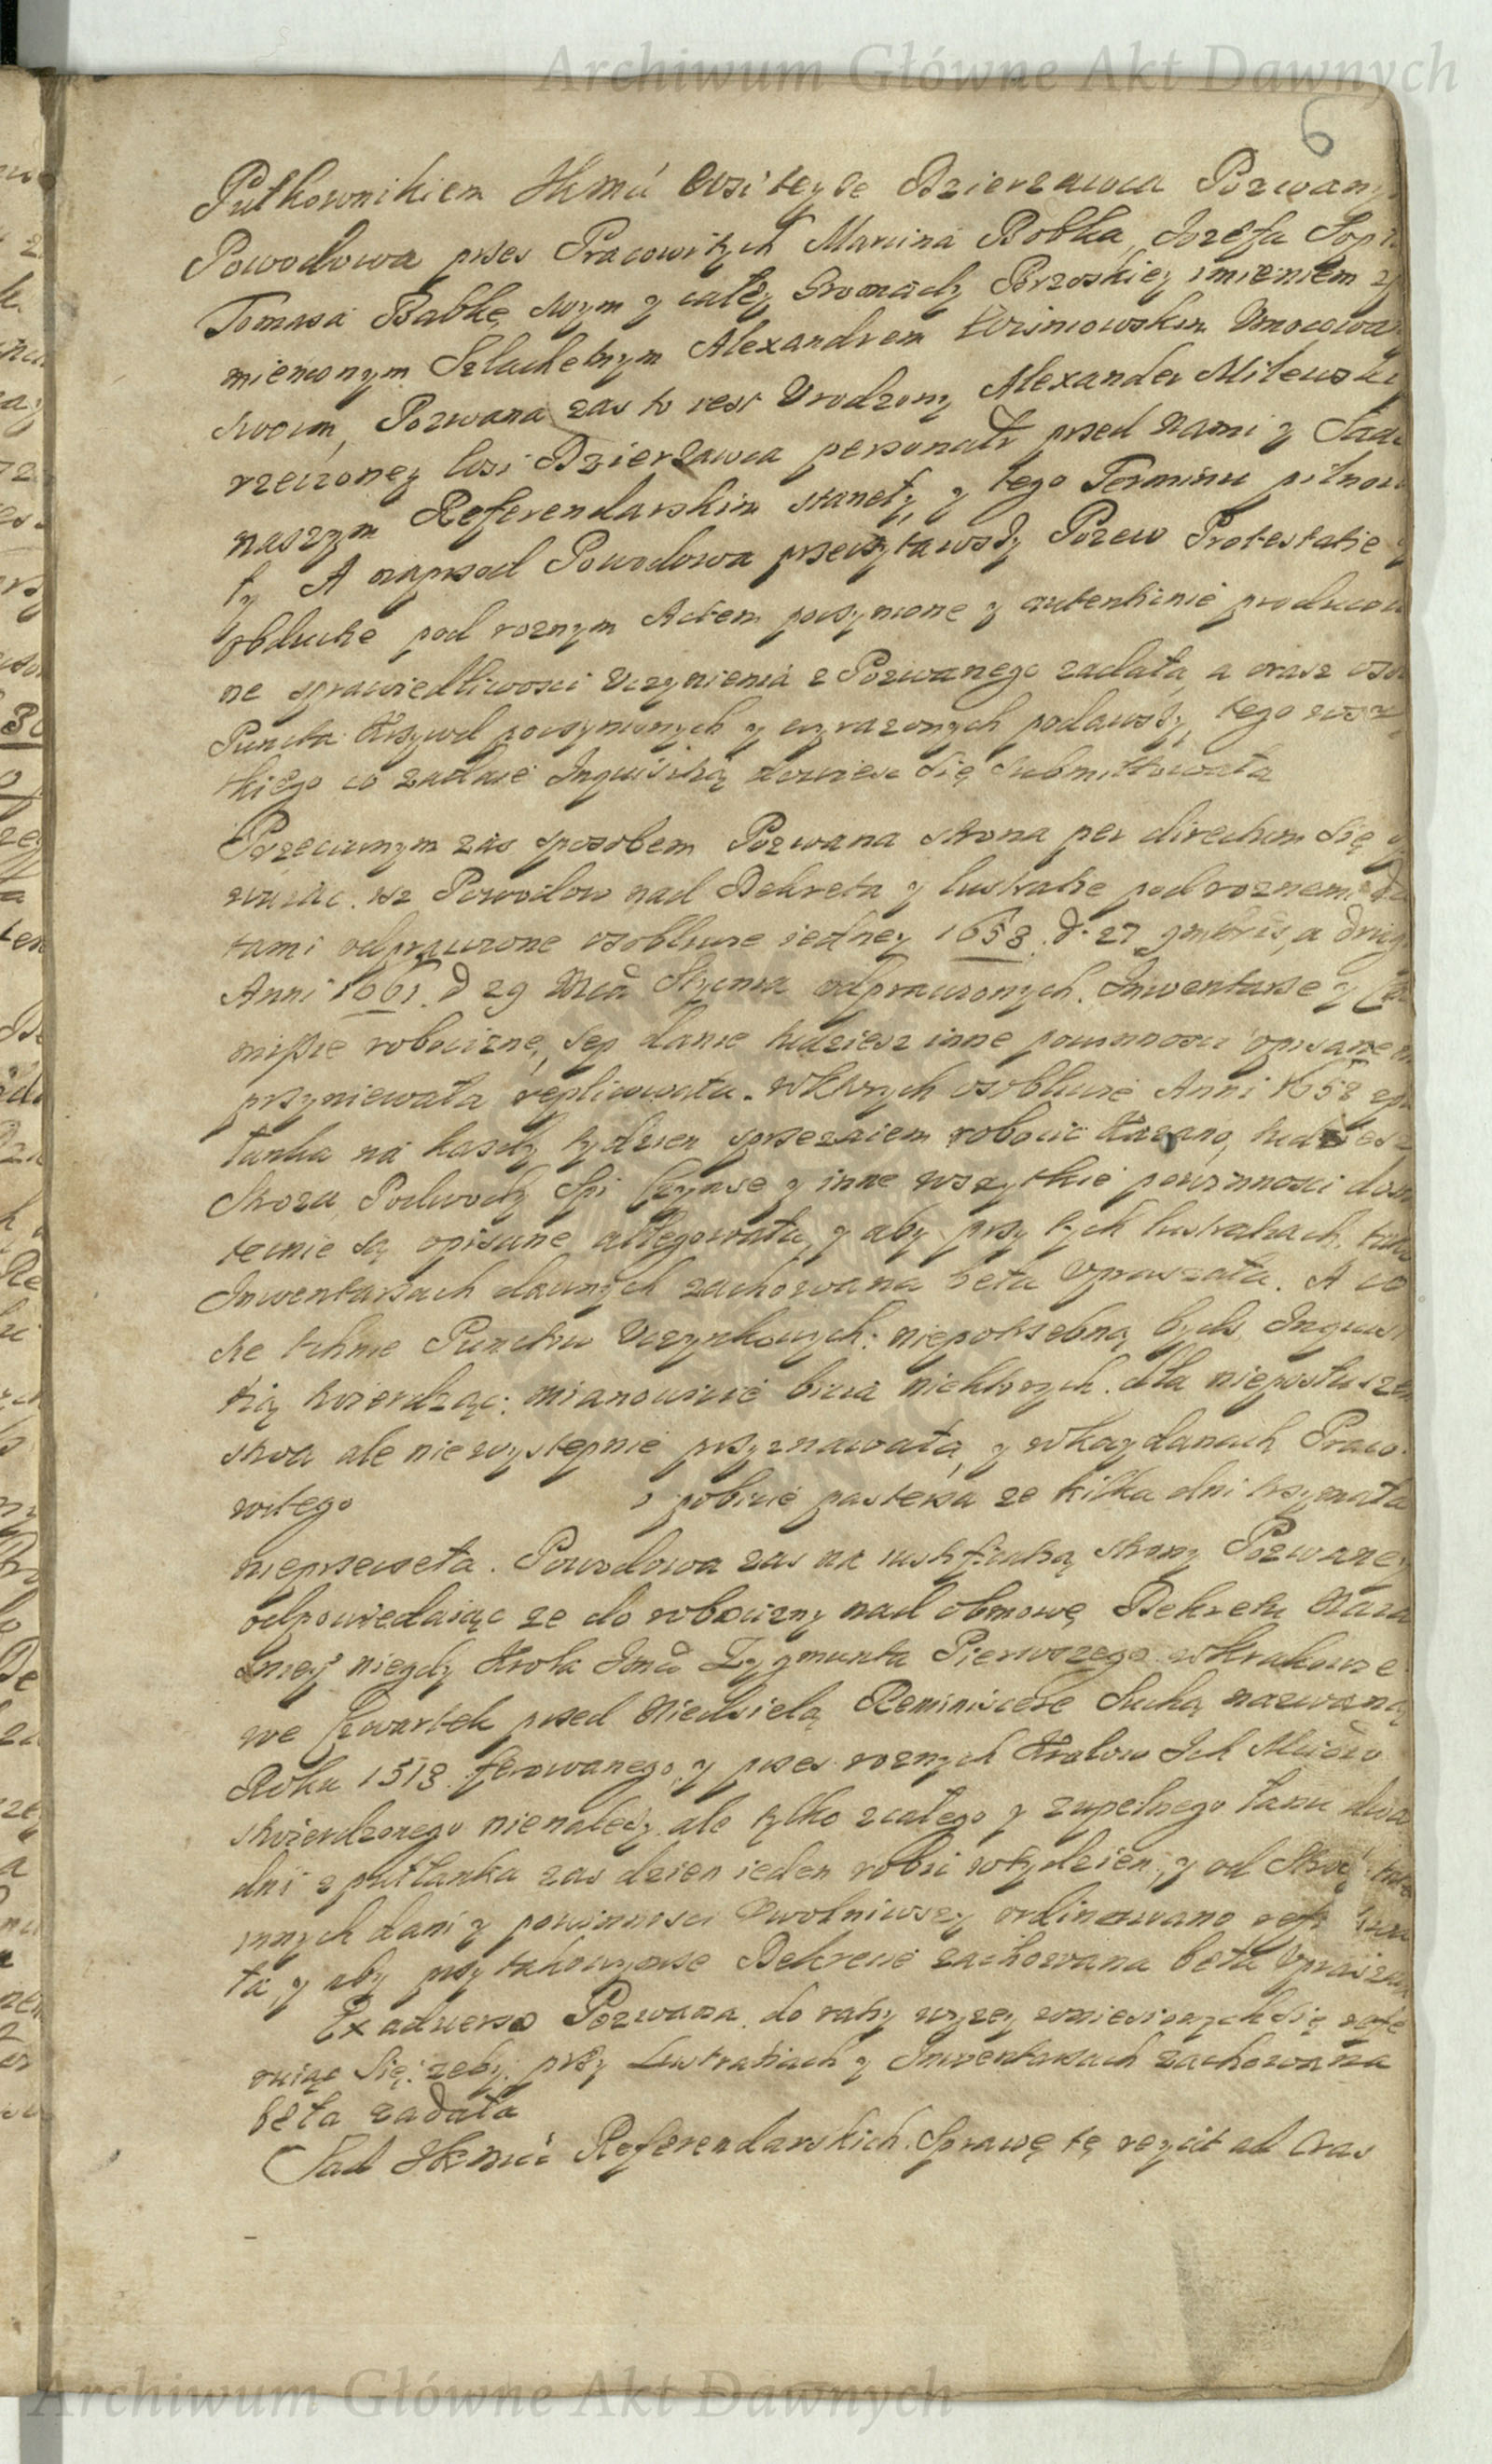 Archiwum Główne Akt Dawnych
6
Pułkownikiem JKmći Wsi teyże Dzierzawca Pozwany
Powodowa przez Pracowitych Marcina Bobka, Jozefa
Tomasa Babkę swym y całey Gromady Brzoskiey imieniem
mienionym Szlachetnym Alexandrem Wisniowskim Umocowa
swoim, Pozwana zas to iest Urodzony Alexander Milewski
rzeczoney Wsi Dzierzawca personatr przed Nami y Sąde
naszym Referendarskim stanęły, y tego Terminu pilnowa
ły A naprzod Powodowa przeczytawszy Pozew Protestatie y
obductie pod roznym Actem poczynione y autenticnie producowa
ne sprawiedliwosci uczynienia z Pozwanego ządała, a oraz oso
Puncta Krzywd poczynionych y wyrazonych podawszy, tego wszy
tkiego co zadaie Inquisitią dowiesc się submittowała
Przeciwnym zas sposobem Pozwana strona per directum się
Powodow nad Dekreta y lustratie pod roznemi da
tami odprawione osobliwie iedney 1658. d. 27 9mbris, a drugi
Anni 1661. d 29 Mcá Stycnia odprawionych. Inwentarze y Co
missie robocizne, sep danie tudziesz inne powinnosci opisane
replicowała. w ktorych osobliwie Anni 1658 z pu
łanka na kazdy tydzien sprzezaiem robocić kazano, tudziesz
Stroza, Podwody Spi Czynsze y inne wszytkie powinnosci dosta
tecnie są opisane allegowała, y aby przy tych lustratiach, tudz
Inwentarzach dawnych zachowana beła upraszała. A co
sie tknie Punctow Uczynkowych: niepotrzebną bydz Inquisi
tią twierdząc: mianowicie bicia niektorych. dla nieposłuszen
stwa ale niewystępnie przyznawała, y w kaydanach Praco
witego o pobicie pasterza ze kilka dni trzymała
nieprzeczeła. Powodowa zas na iustificatią strony Pozwaney
odpowiedaiąc ze do robocizny nad obmowę Dekretu Naia
snieyº niegdy Krola Jmci Zygmunta Pierwszego w Krakowie
we Czwartek przed Niedzielą Reminiscere Suchą nazwaną
Roku 1518. ferowanego, y przez roznych Krolow Ich Mciow
stwierdzonego nienalezy ale tylko z całego y zupełnego łanu dwa
dni z pułłanka zas dzien ieden robić w tydzien, y od Strozy
innych dani y powinnosci uwolniwszy ordinowano
ła, y aby przy takowymze Dekrecie zachowana beła upraszała
Ex adverso Pozwana. do ratiy wyzey wniesionych się refe
ruiąc się: zeby przy Lustratiach y Inwentarzach zachowana
beła ządała
Sąd JKmći Referendarskich. Sprawę tę reycit ad Cras
Archiwum Główne Akt Dawnych